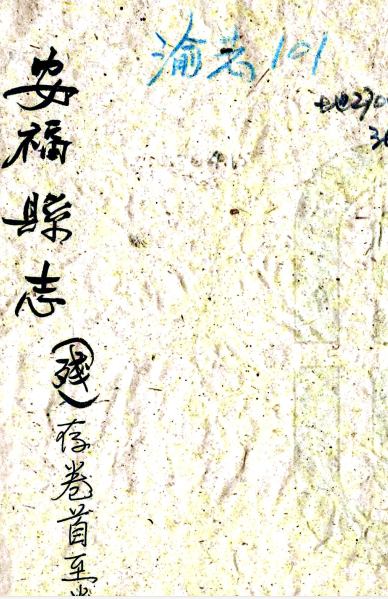 渝志101
地270
36
安福縣志
(殘)存卷首至